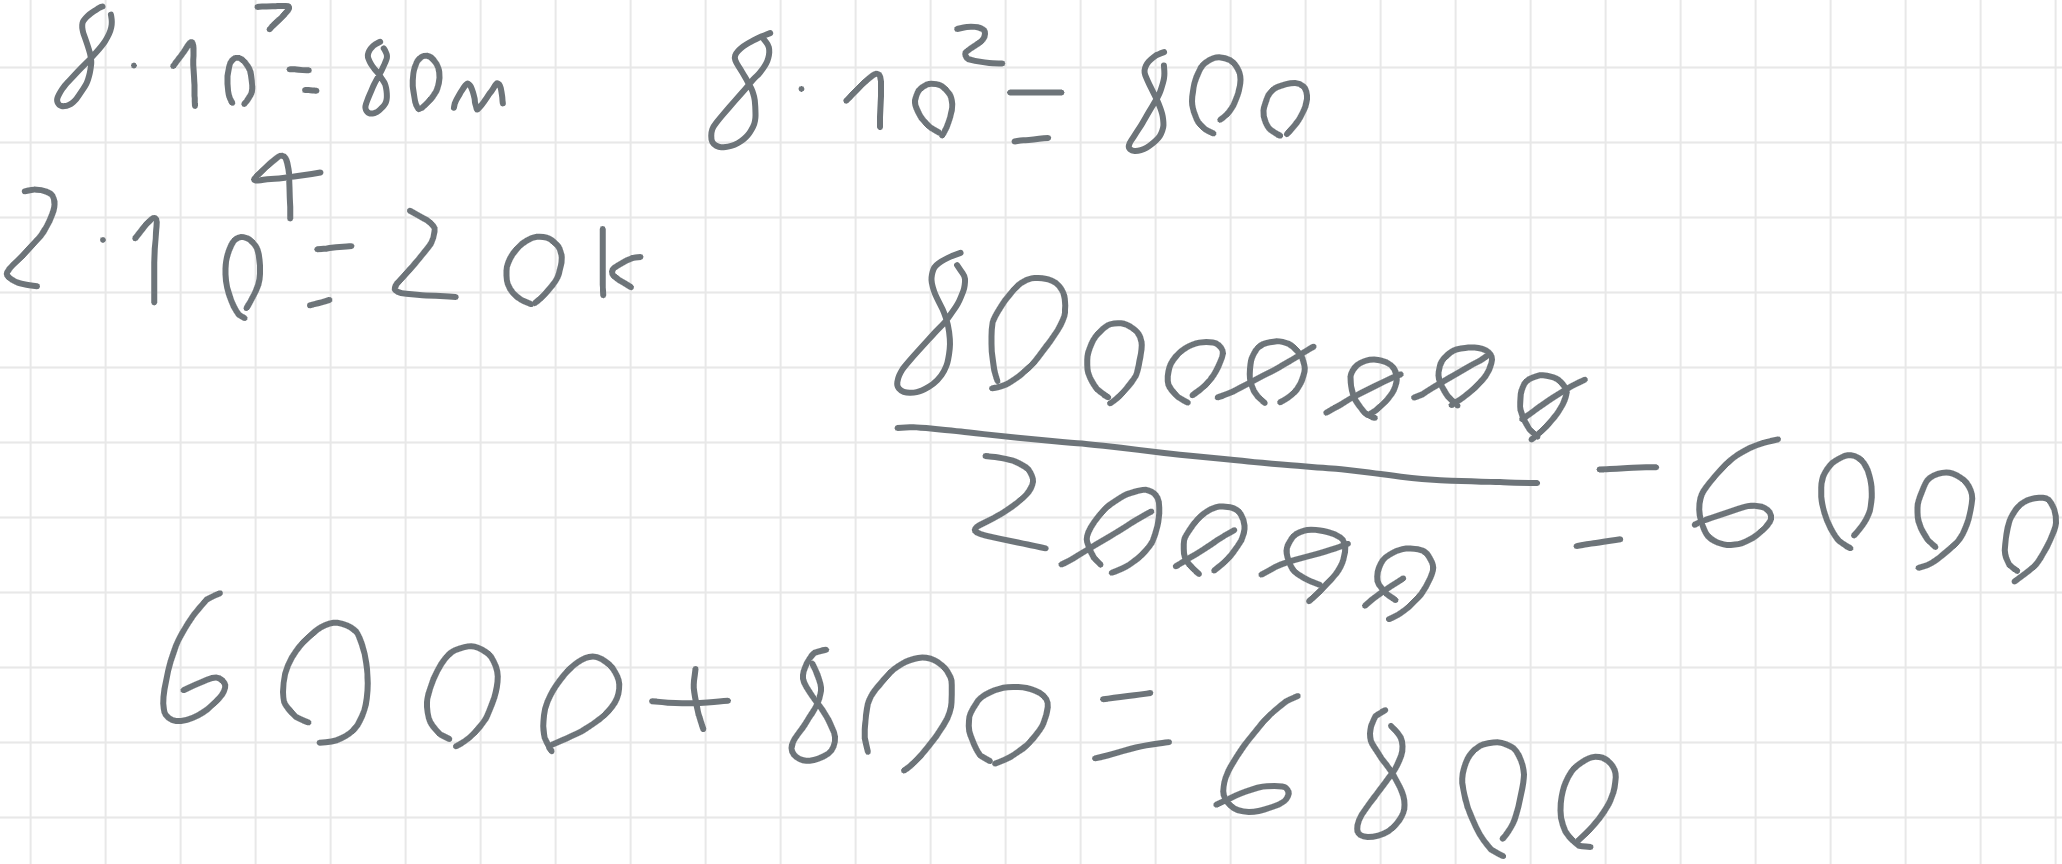 8 · 10⁷ = 80m
8 · 10² = 800
2 · 10⁴ = 20k
80000000 / 20000 = 6000
6000 + 800 = 6800